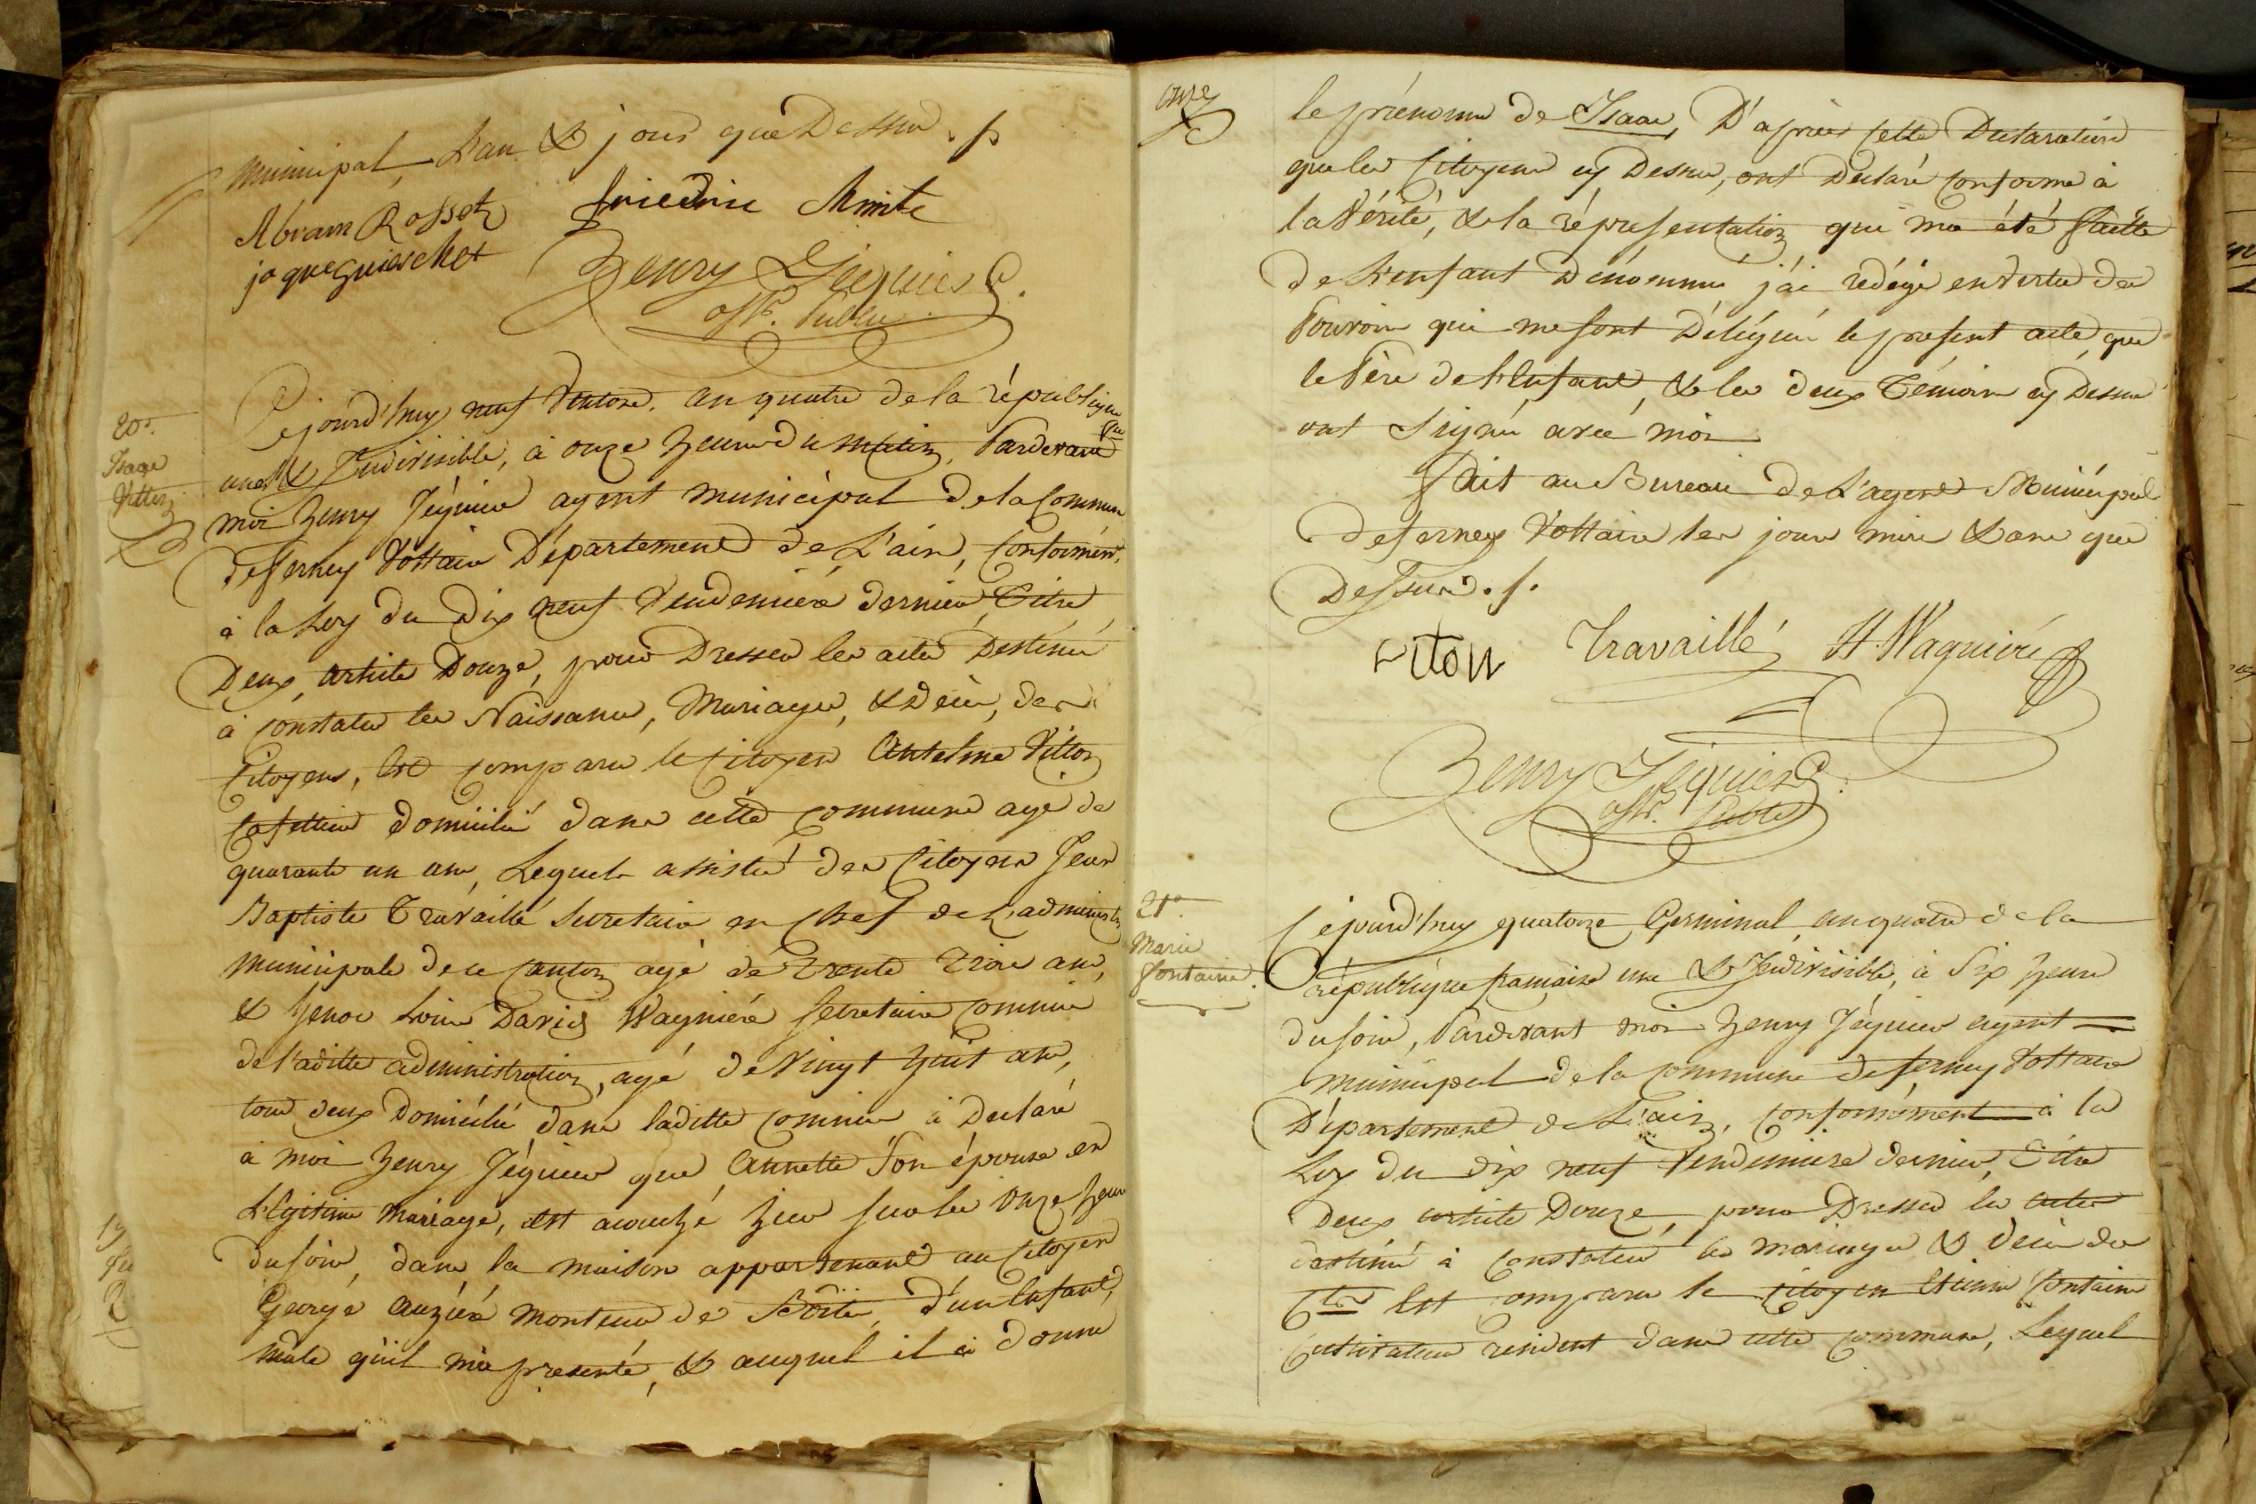 municipal, L'an & jour que Dessus
Abram Rosset
friedric
jaque
Henry Jéquier
off.r Public
20e.
Isaac
Vitton
Cejourd'huy neuf Ventose, an quatre de la république
une & Indivisible, à onze heures du matin, Pardevant
moi henry Jéquier agent municipal de la Commune
de ferney Voltaire Département de L'ain, Conformémt.
à la Loy du Dix neuf Vendemiere dernier, Titre,
Deux, article Douze, pour Dresser les actes Destinés
à Constater les Naissances, Mariages, & Décès, des
Citoyens, Est comparu le Citoyen Antelme Vitton
Cafetier domicilié dans cette commune agé de
quarante un ans, Lequel assisté des Citoyens Jean
Baptiste Travaillé Secretaire en Chef de L'administr
municipale de ce Canton agé de Trente Trois ans,
& henoc Louis David Wagnière Secretaire Commis
de laditte administration, agé de Vingt huit ans,
tous deux Domiciliés dans laditte commune à Déclaré
à moi henry Jéquier que Annette Son épouse en
Légitime mariage, est acouché hier sur les onze heures
du soir, dans la maison appartenant au Citoyen
George auzière monteur de Boëtes, d'un Enfant,
male qu'il m'a presenté, & auquel il à donné
onze
le prénoms de Isaac, D'après cette Declaration
que les Citoyens cy Dessus, ont Déclaré conforme à
la Vérité, & la répresentation qui m'a été faitte
de L'enfant Dénommé, j'ai redigé en Vertu des
Pouvoirs qui me sont Délégués le present acte, que
le Père de L'Enfant, & les deux Témoins cy Dessus
ont Signé avec moi
Fait au Bureau de L'agent Municipal
de ferney Voltaire les jour mois & ans que
Dessus.
viton Travaillé H. Wagnière
Henry Jéquier
off.r Public
21e.
Marie
fontaine.
Cejourd'huy quatorze Germinal, an quatre de la
république française une & Indivisible, à Six heures
du soir, Pardevant moi henry Jéquier agent
municipal de la commune de ferney Voltaire
Département de L'ain, conformément à la
Loy du dix neuf Vendemiere dernier, Titre
deux article Douze, pour Dresser les actes
destinés à Constater les mariages & Décès des
Cens Est comparu le citoyen Etienne fontaine
Cultivateur resident dans cette commune, Lequel